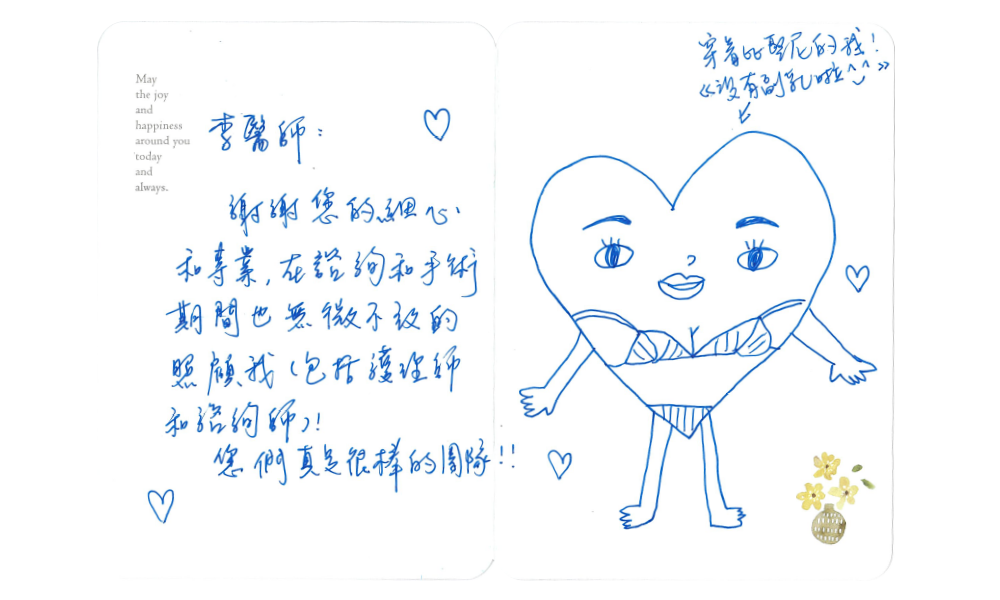 May
the joy
and
happiness
around you
today
and
always.
李醫師：
謝謝您的細心
和專業，在諮詢和手術
期間也無微不致的
照顧我（包括護理師
和諮詢師）！
您們真是很棒的團隊！！
穿着比堅尼的我！
《沒有副乳啦^^》